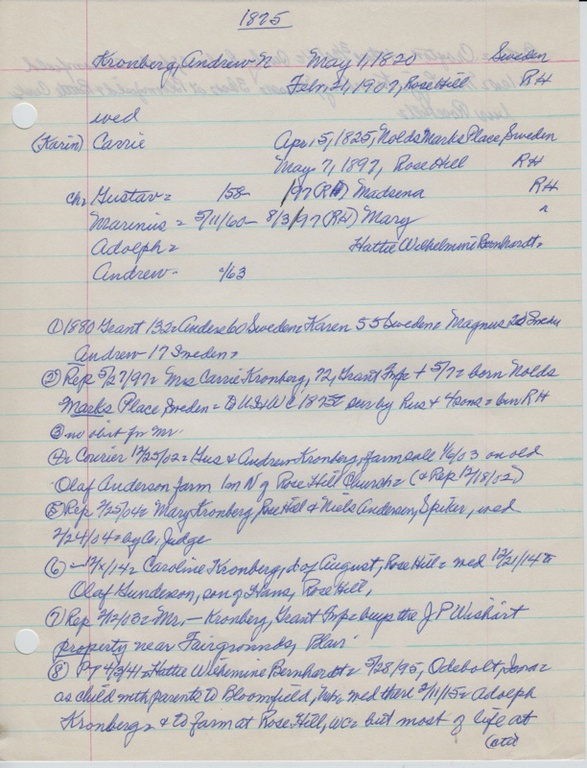 1825
Kronberg, Andrew N May 1, 1820 Sweden
Febr. 21, 1907, Rose Hill RH
wed
(Karin) Carrie Apr 5, 1825, Nolds Marks Place, Sweden
May 7, 1897, Rose Hill RH
ch= Gustav= 158- /97 (RH) Madsena RH
Marinius = 5/11/60 - 8/3/97 (RH) Mary "
Adolph= Hattie Wilhelmine Bernhardt=
Andrew- /63
① 1880 Grant 132= Anders 60 Sweden= Karen 55 Sweden= Magnus 20 Sweden
Andrew 17 Sweden=
② Rep 5/27/97= Mrs Carrie Kronberg, 72, Grant Twp + 5/7= born Nolds
Marks Place, Sweden= to US & WC 1825 surv by hus & 4 sons= bur RH
③ no obit for Mr.
④ Courier 12/25/02= Gus & Andrew Kronberg, farm sale 1/6/03 on old
Olaf Anderson farm 1m N of Rose Hill Church= (& Rep 12/18/02)
⑤ Rep 2/25/04= Mary Kronberg, Rose Hill & Niels Andersen, Spiker, wed
2/24/04= by Co. Judge
⑥ 12/x/14= Caroline Kronberg, d of August, Rose Hill= wed 12/21/14 to
Olaf Gunderson, son of Hans, Rose Hill,
⑦ Rep 2/12/03= Mr. — Kronberg, Grant Twp= buys the J P Wishart
property near Fairgrounds, Blair
⑧ PT 4/3/41= Hattie Wilhemine Bernhardt= 5/28/95, Odebolt, Iowa=
as child with parents to Bloomfield, Neb= wed there 2/11/15= Adolph
Kronberg= & to farm at Rose Hill, WC= but most of life at
(ctd